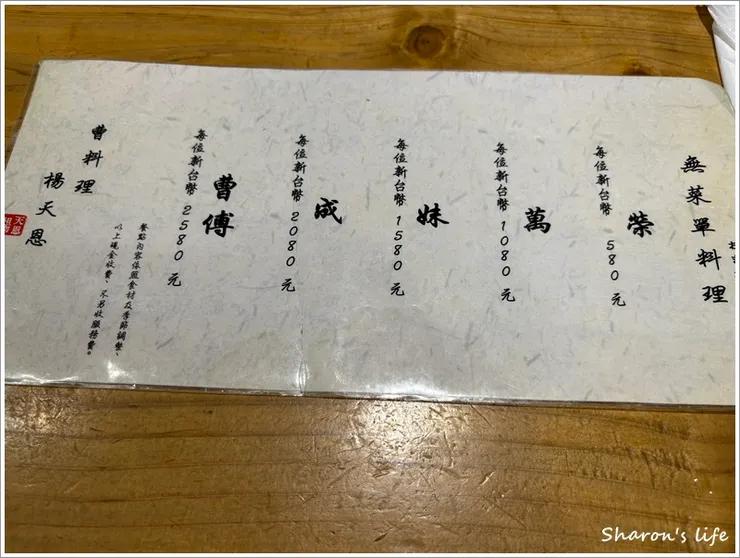 無菜單料理
榮
每位新台幣 580 元
萬
每位新台幣 1080 元
妹
每位新台幣 1580 元
成
每位新台幣 2080 元
曹傅
每位新台幣 2580 元
餐點內容依照食材及季節調整、
以上現金收費、不另收服務費。
曹料理
楊天恩
天恩
Sharon's life